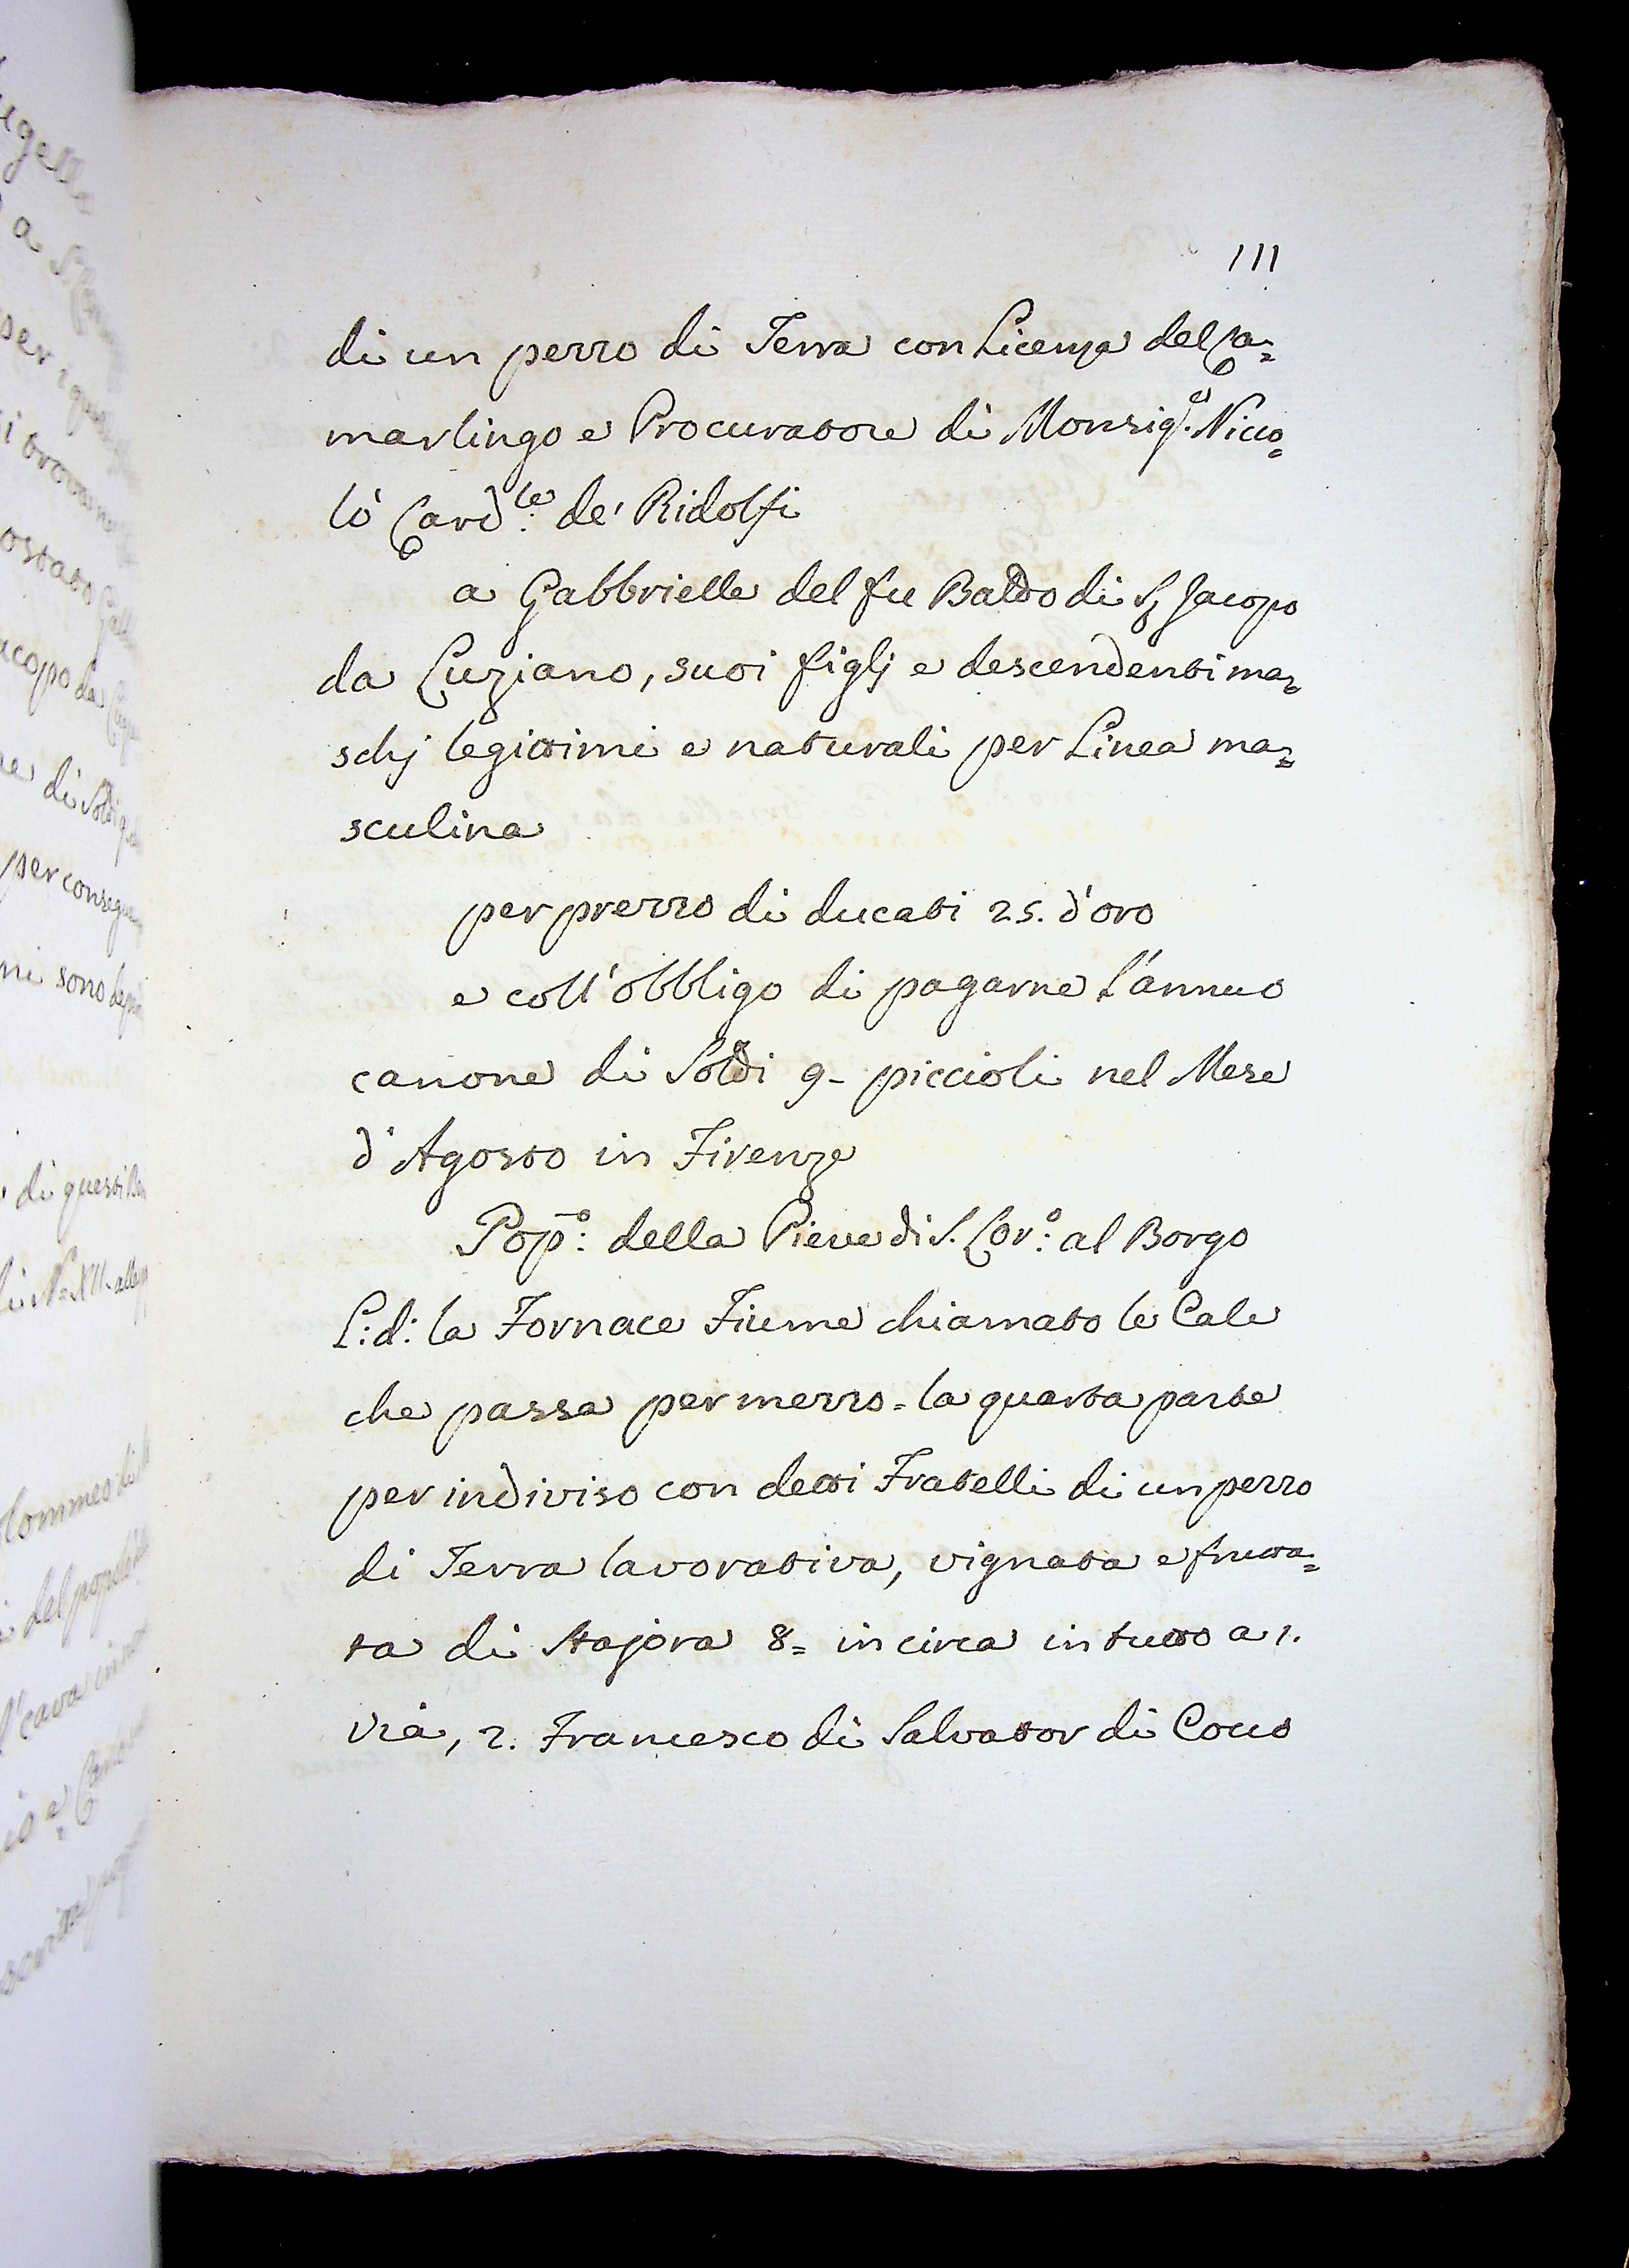 111
di un pezzo di Terra con Licenza del Ca=
marlingo e Procuratore di Monsig.e Nicco=
lò Card.le de' Ridolfi
a Gabbrielle del fu Baldo di Jacopo
da Cuziano, suoi figlj e descendenti ma=
schj legittimi e naturali per Linea ma=
sculina
per prezzo di ducati 25. d'oro
e coll'obbligo di pagarne l'annuo
canone di Soldi 9- piccioli nel Mese
d'Agosto in Firenze
Pop:o della Pieve di S. Lor:o al Borgo
L: d: la Fornace Fiume chiamato le Cale
che passa per mezzo = la quarta parte
per indiviso con detti Fratelli di un pezzo
di Terra lavorativa, vignata e frutta=
ta di Stajora 8= in circa in tutto a 1.
via, 2. Francesco di Salvator di Cocco